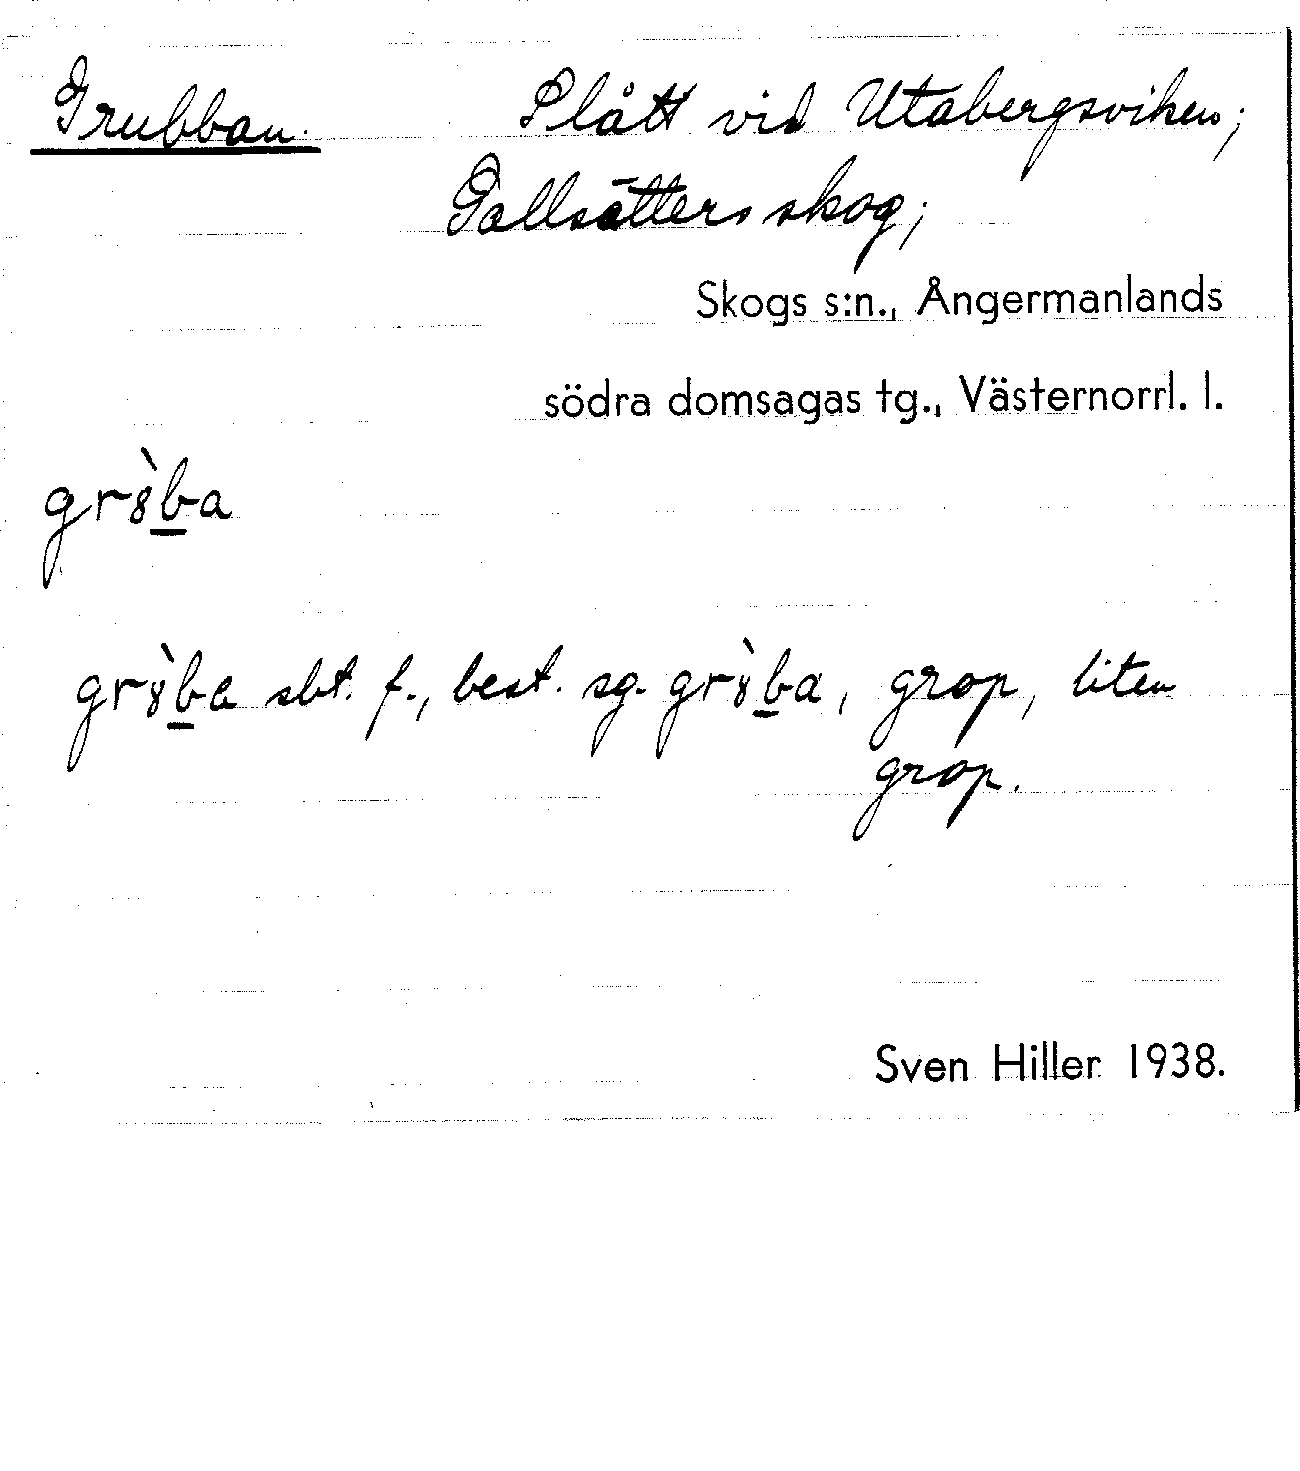 Grubban. Slått vid Utabergsviken;
Gallsätters skog;
Skogs s:n., Ångermanlands
södra domsagas tg., Västernorrl. l.
gr8̀b̲a
gr8̀b̲a sbt. f., best. sg. gr8̀b̲a, grop, liten
grop.
Sven Hiller 1938.